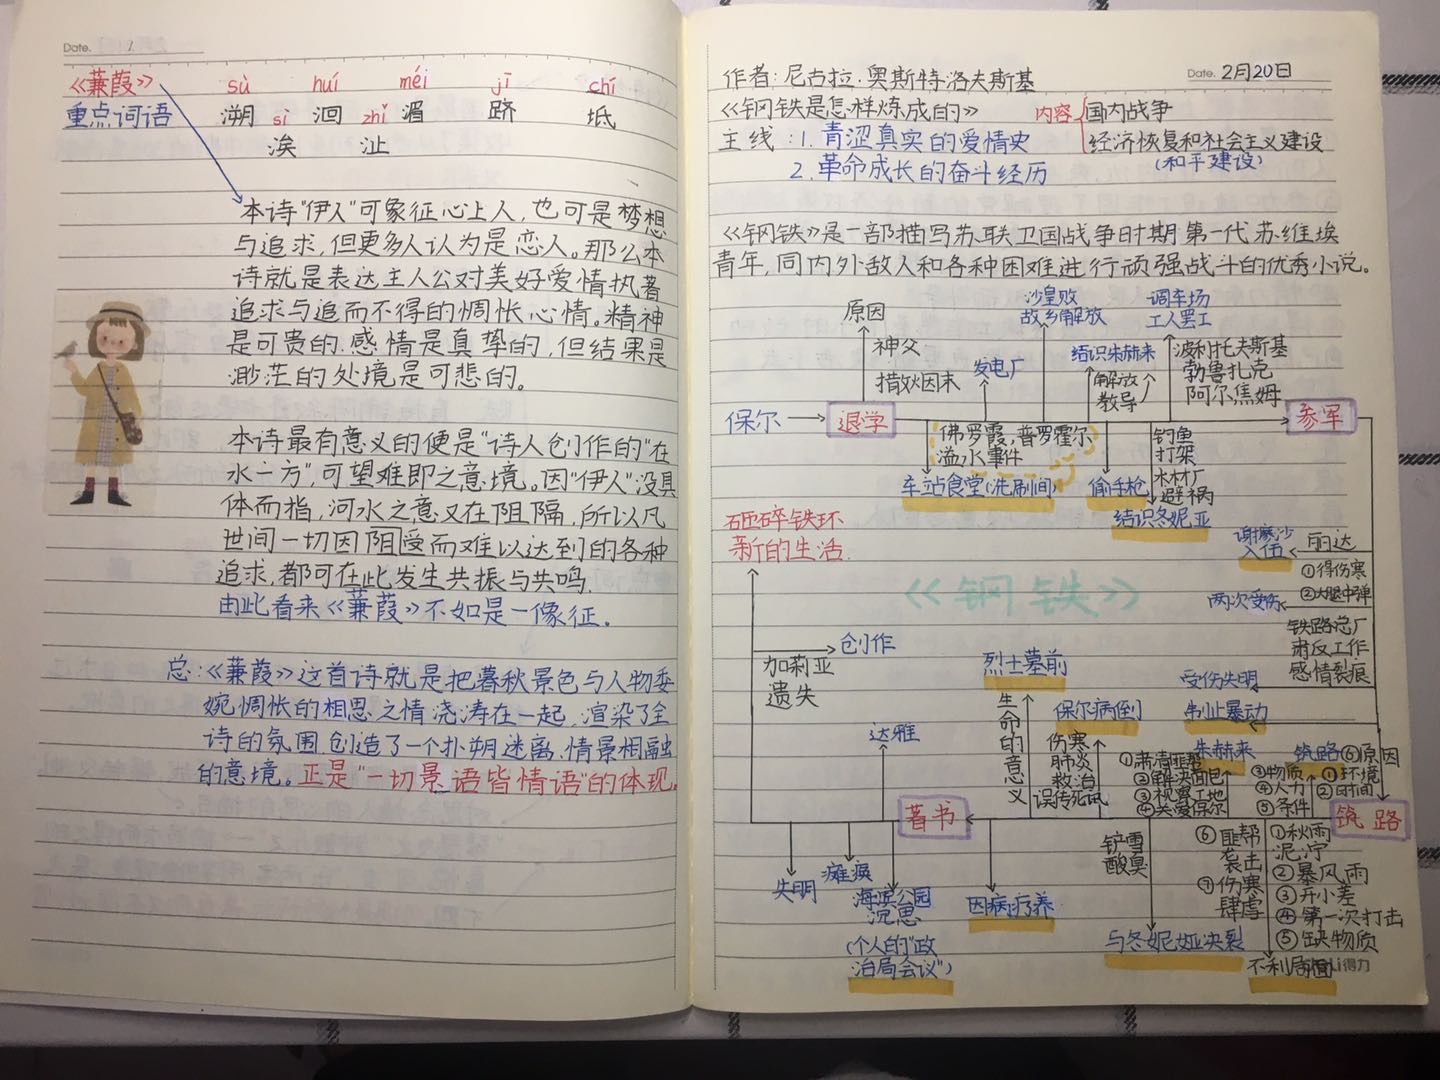 Date.
《蒹葭》
sù huí méi jī chí
重点词语 溯 sì 洄 zhǐ 湄 跻 坻
涘 沚
本诗"伊人"可象征心上人,也可是梦想
与追求,但更多人认为是恋人。那么本
诗就是表达主人公对美好爱情执著
追求与追而不得的惆怅心情。精神
是可贵的.感情是真挚的,但结果是
渺茫的处境是可悲的。
本诗最有意义的便是"诗人创作的"在
水一方",可望难即之意境。因"伊人"没具
体而指,河水之意又在阻隔,所以凡
世间一切因阻受而难以达到的各种
追求,都可在此发生共振与共鸣.
由此看来《蒹葭》不如是一像征.
总:《蒹葭》这首诗就是把暮秋景色与人物委
婉惆怅的相思之情浇涛在一起.渲染了全
诗的氛围.创造了一个扑朔迷离.情景相融
的意境。正是"一切景语皆情语"的体现.
作者:尼古拉·奥斯特洛夫斯基
Date. 2月20日
《钢铁是怎样炼成的》
内容 国内战争
经济恢复和社会主义建设
(和平建设)
主线:1.青涩真实的爱情史
2.革命成长的奋斗经历
《钢铁》是一部描写苏联卫国战争时期第一代苏维埃
青年,同内外敌人和各种困难进行顽强战斗的优秀小说。
原因
神父
措狄因未
发电厂
沙皇败
故乡解放
结识朱赫来
解放
教导
调车场
工人罢工
波利托夫斯基
勃鲁扎克
阿尔焦姆
保尔
退学
参军
佛罗霞,普罗霍尔
溢水事件
车站食堂(洗刷间)
偷手枪
钓鱼
打架
木材厂
避祸
结识冬妮亚
砸碎铁环
新的生活
《钢铁》
谢廖沙
入伍
丽达
①得伤寒
②大腿中弹
两次受伤
铁路总厂
肃反工作
感情裂痕
受伤失明
制止暴动
创作
加莉亚
遗失
烈士墓前
生命的意义
保尔病倒
伤寒
肺炎
救治
误传死讯
达雅
朱赫来
①肃清匪帮
②解决面包
③视察工地
④关爱保尔
筑路⑥原因
①环境
②时间
③物质
④人力
⑤条件
著书
筑路
失明
瘫痪
海滨公园
沉思
(个人的"政
治局会议")
因病疗养
铲雪
酸臭
与冬妮娅决裂
⑥匪帮
袭击
⑦伤寒
肆虐
①秋雨
泥泞
②暴风雨
③开小差
④第一次打击
⑤缺物质
不利局面
得力